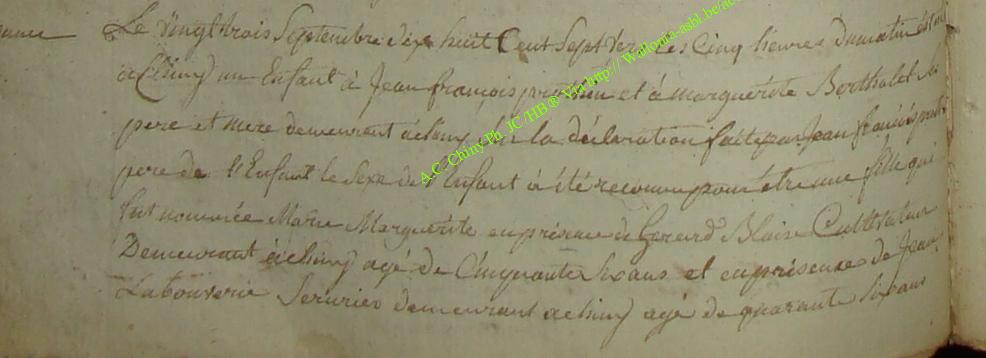 Le vingt trois Septembre dixe huit Cent Sept vers les Cinq heures du matin est né
à Chiny un Enfant à Jean françois et à marguerite Berthalet
pere et mere demeurant à chiny sur la déclaration faite par Jean francois
pere de l'Enfant le sexe de l'Enfant à été reconnu pour être une fille qui
fut nommée Marie Marguerite en présence de Gerard Blaise Cultivateur
Demeurant à chiny agé de Cinquante six ans et en présence de Jean
Labouverie Serurier demeurant a chiny agé de quarante six ans
A.C Chiny Ph JC/HB ® Via http:// Wallonia-asbl.be/ac